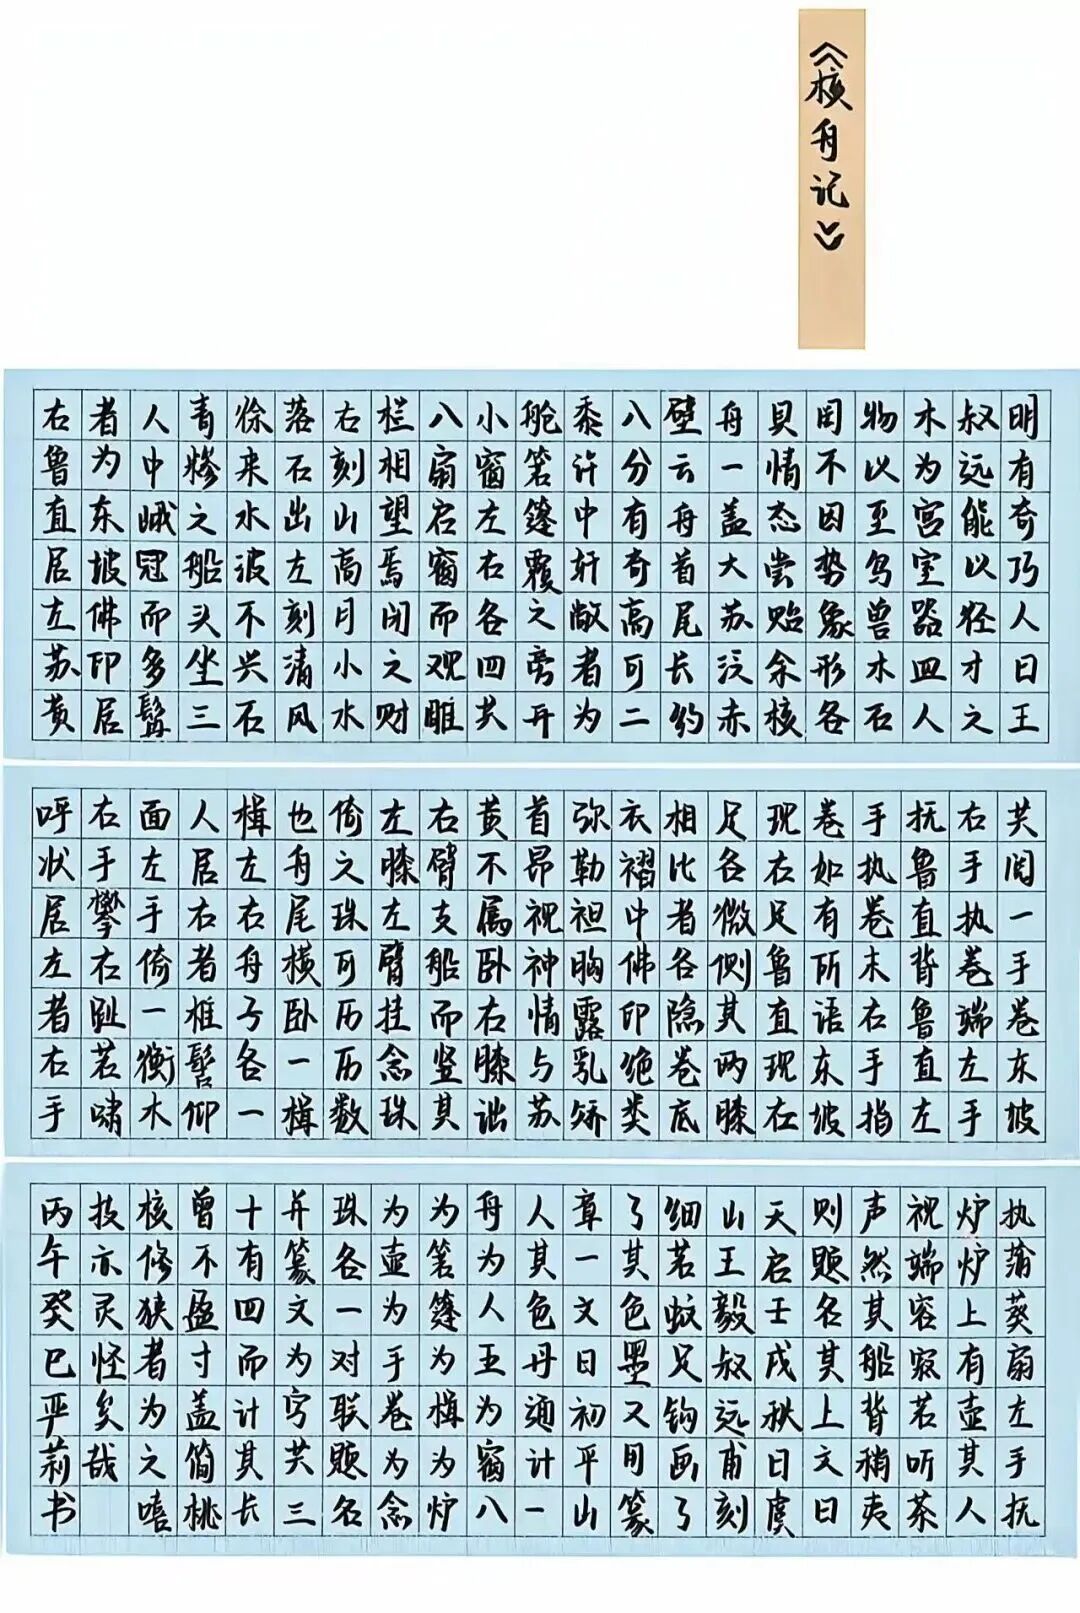 《核舟记》
明有奇巧人曰王
叔远能以径寸之
木为宫室器皿人
物以至鸟兽木石
罔不因势象形各
具情态尝贻余核
舟一盖大苏泛赤
壁云舟首尾长约
八分有奇高可二
黍许中轩敞者为
舱箬篷覆之旁开
小窗左右各四共
八扇启窗而观雕
栏相望焉闭之则
右刻山高月小水
落石出左刻清风
徐来水波不兴石
青糁之船头坐三
人中峨冠而多髯
者为东坡佛印居
右鲁直居左苏黄
共阅一手卷东坡
右手执卷端左手
抚鲁直背鲁直左
手执卷末右手指
卷如有所语东坡
现右足鲁直现左
足各微侧其两膝
相比者各隐卷底
衣褶中佛印绝类
弥勒袒胸露乳矫
首昂视神情与苏
黄不属卧右膝诎
右臂支船而竖其
左膝左臂挂念珠
倚之珠可历历数
也舟尾横卧一楫
楫左右舟子各一
人居右者椎髻仰
面左手倚一衡木
右手攀右趾若啸
呼状居左者右手
执蒲葵扇左手抚
炉炉上有壶其人
视端容寂若听茶
声然其船背稍夷
则题名其上文曰
天启壬戌秋日虞
山王毅叔远甫刻
细若蚊足钩画了
了其色墨又用篆
章一文曰初平山
人其色丹通计一
舟为人五为窗八
为箬篷为楫为炉
为壶为手卷为念
珠各一对联题名
并篆文为字共三
十有四而计其长
曾不盈寸盖简桃
核修狭者为之嘻
技亦灵怪矣哉
丙午癸巳严莉书